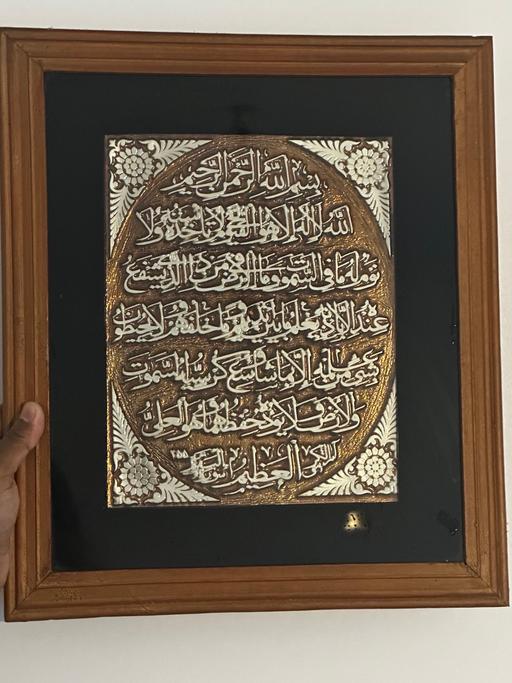 بسم الله الرحمن الرحيم
الله لا اله الا هو الحي القيوم لا تأخذه سنة ولا
نوم له ما في السموت وما في الارض من ذا الذي يشفع
عنده الا باذنه يعلم ما بين ايديهم وما خلفهم ولا يحيطون
بشيء من علمه الا بما شاء وسع كرسيه السموت
والارض ولا يؤده حفظهما وهو العلي
العظيم ٢٥٥